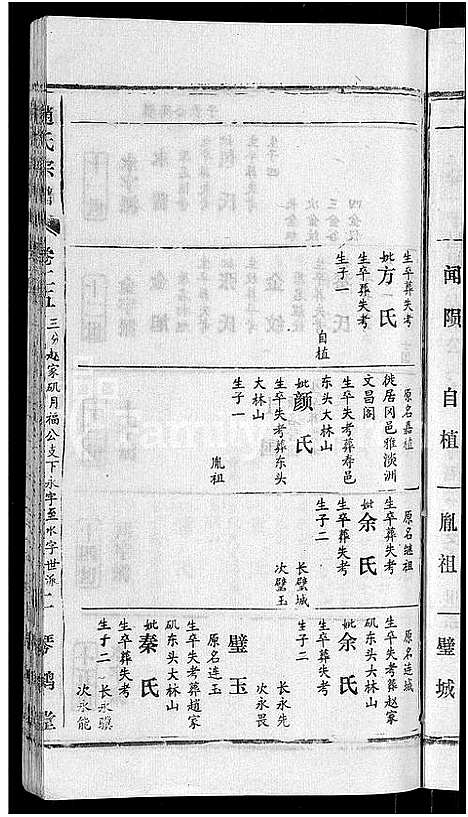 闻陨
自植
胤祖
璧城
生卒葬失考
妣方氏
生卒葬失考
生子一
自植
原名嘉植
徙居冈邑雅淡洲
文昌阁
生卒失考葬寿邑
东头大林山
妣颜氏
生卒失考葬东头
大林山
生子一
胤祖
原名继祖
生卒葬失考
妣余氏
生卒葬失考
生子二
长璧城
次璧玉
原名连城
生卒失考葬赵家
矶东头大林山
妣余氏
生卒葬失考
生子二
长永先
次永畏
璧玉
原名连玉
生卒失考葬趙家
矶东头大林山
妣秦氏
生卒葬失考
生子二
长永骥
次永能
趙氏宗譜
卷十五
三分赵家矶月福公支下永字至水字世派
二
琴鹤堂